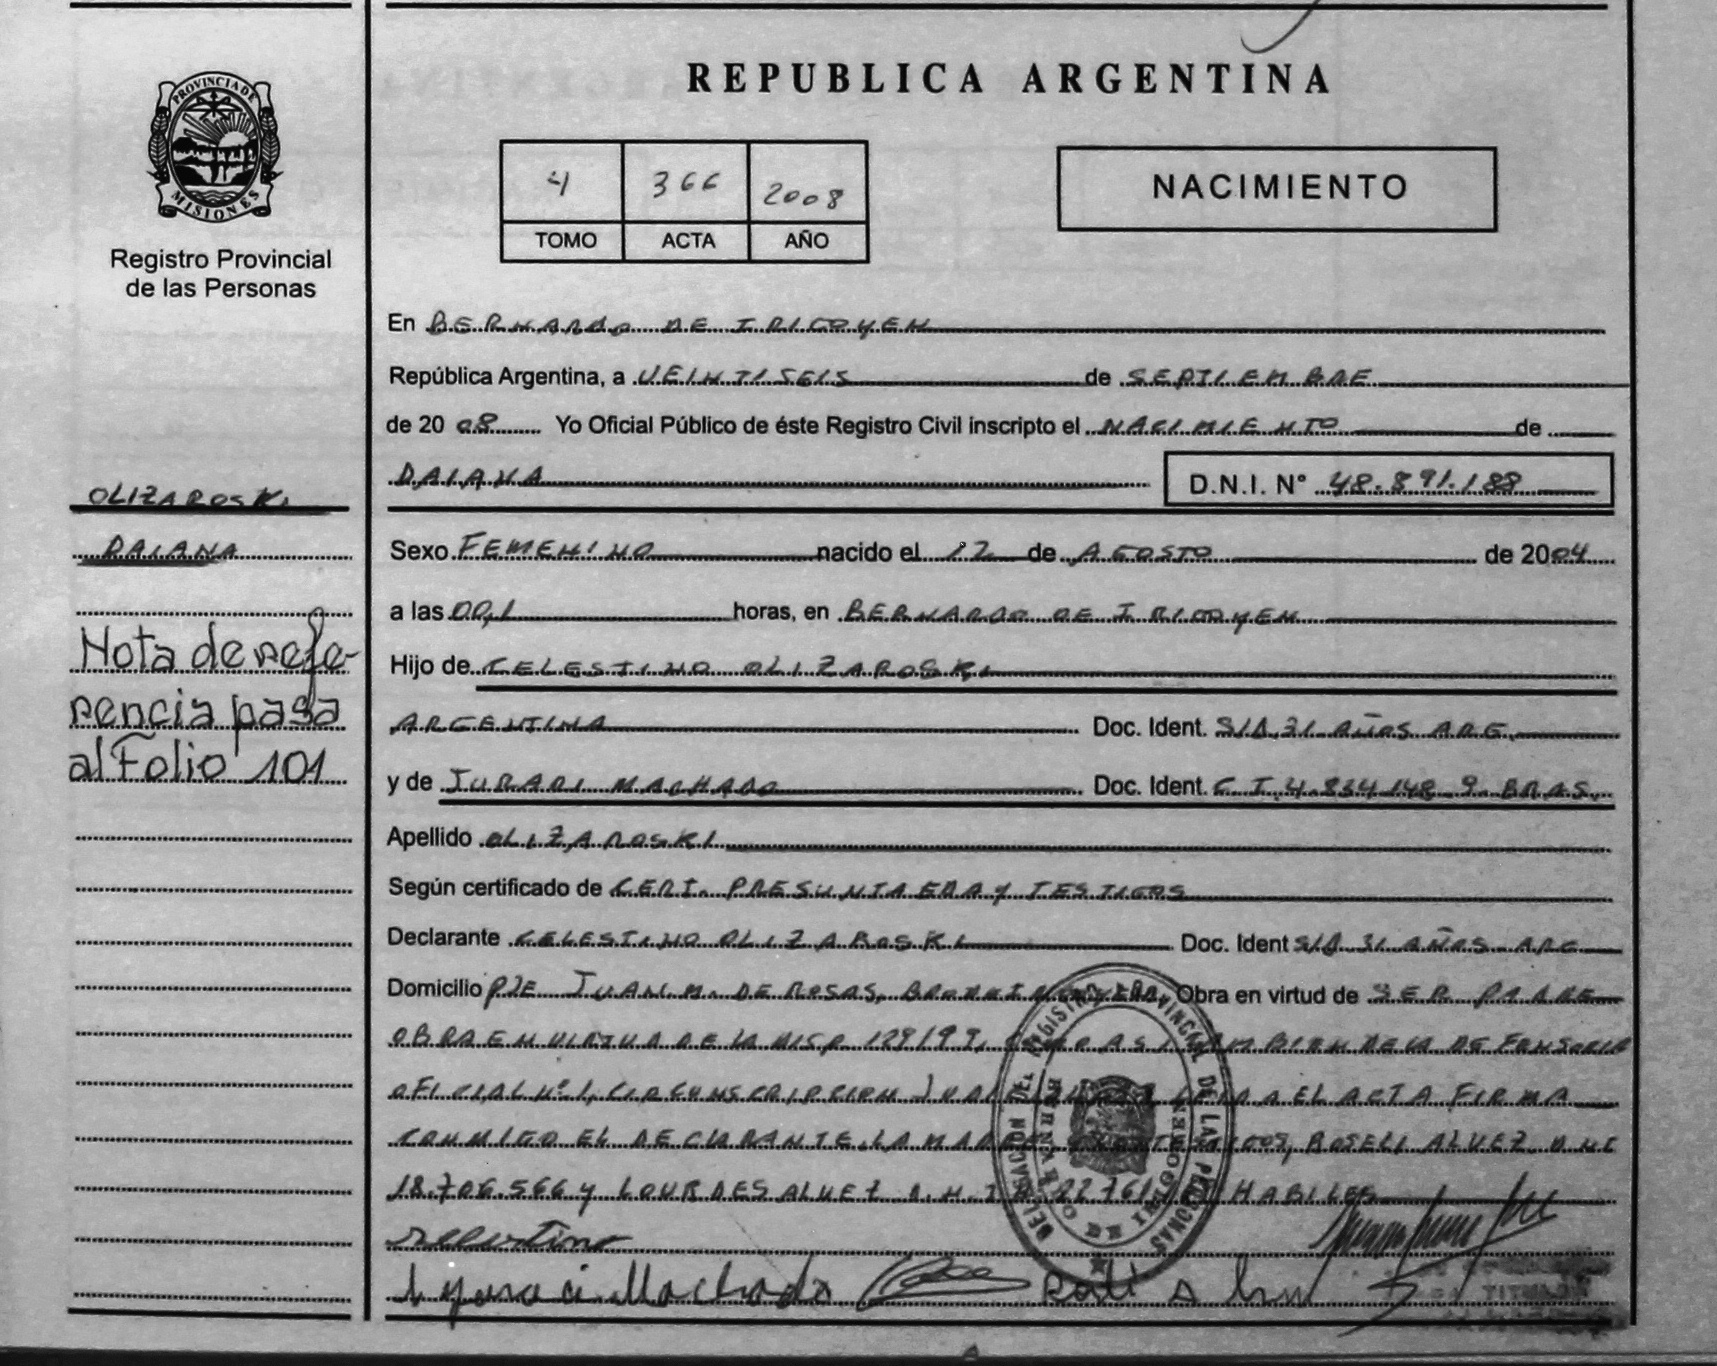 REPUBLICA ARGENTINA
PROVINCIA DE
MISIONES
Registro Provincial
de las Personas
4 366 2008
TOMO ACTA AÑO
NACIMIENTO
En BERNARDO DE IRIGOYEN
República Argentina, a VEINTISEIS de SEPTIEMBRE
de 20 08 Yo Oficial Público de éste Registro Civil inscripto el NACIMIENTO de
DAIANA D.N.I. N° 48.891.188
OLIZAROSKI
DAIANA
Nota de refe-
rencia pasa
al Folio 101
Sexo FEMENINO nacido el 12 de AGOSTO de 2004
a las 00,1 horas, en BERNARDO DE IRIGOYEN
Hijo de CELESTINO OLIZAROSKI
ARGENTINA Doc. Ident. S/D.31 AÑOS ARG.
y de IURARI MACHADO Doc. Ident. C.I.4.834.148-9-BRAS.
Apellido OLIZAROSKI
Según certificado de CERT. PRESUNTA EDAD Y TESTIGOS
Declarante CELESTINO OLIZAROSKI Doc. Ident S/D 31 AÑOS ARG
Domicilio PJE JUAN.M. DE ROSAS, Obra en virtud de SER PADRE
OBRA EN VIRTUD DE LA DISP 129/99, TAMBIEN DE LA DEFENSORIA
OFICIAL Nº1, CIRCUNSCRIPCION EL ACTA FIRMA
CONMIGO EL DECLARANTE, LA MADRE, ROSELI ALVEZ DNI
18.706.566 Y LOURDES ALVEZ D.N.I. HABILES
Machado
DELEGACION DEL REGISTRO PROVINCIAL DE LAS PERSONAS
BERNARDO DE IRIGOYEN